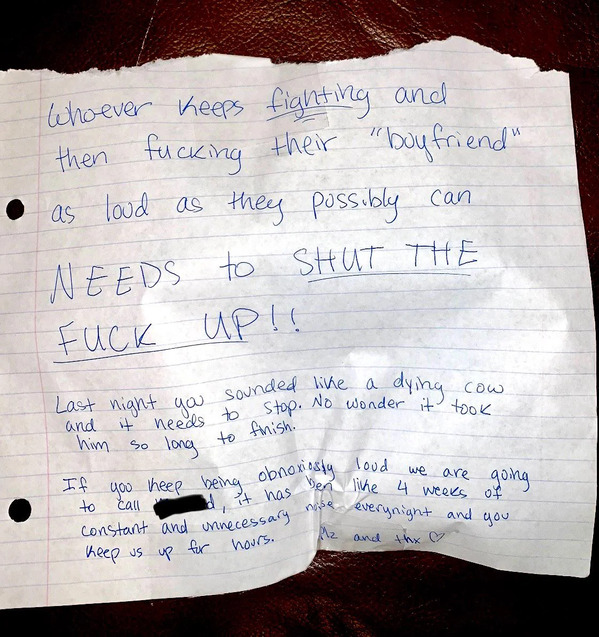 Whoever keeps fighting and
then fucking their "boyfriend"
as loud as they possibly can
NEEDS to SHUT THE
FUCK UP!!
Last night you sounded like a dying cow
and it needs to stop. No wonder it took
him so long to finish.
If you keep being obnoxiosly loud we are going
to call d, it has ben like 4 weeks of
constant and unnecessary noise everynight and you
keep us up for hours. Plz and thx ♡